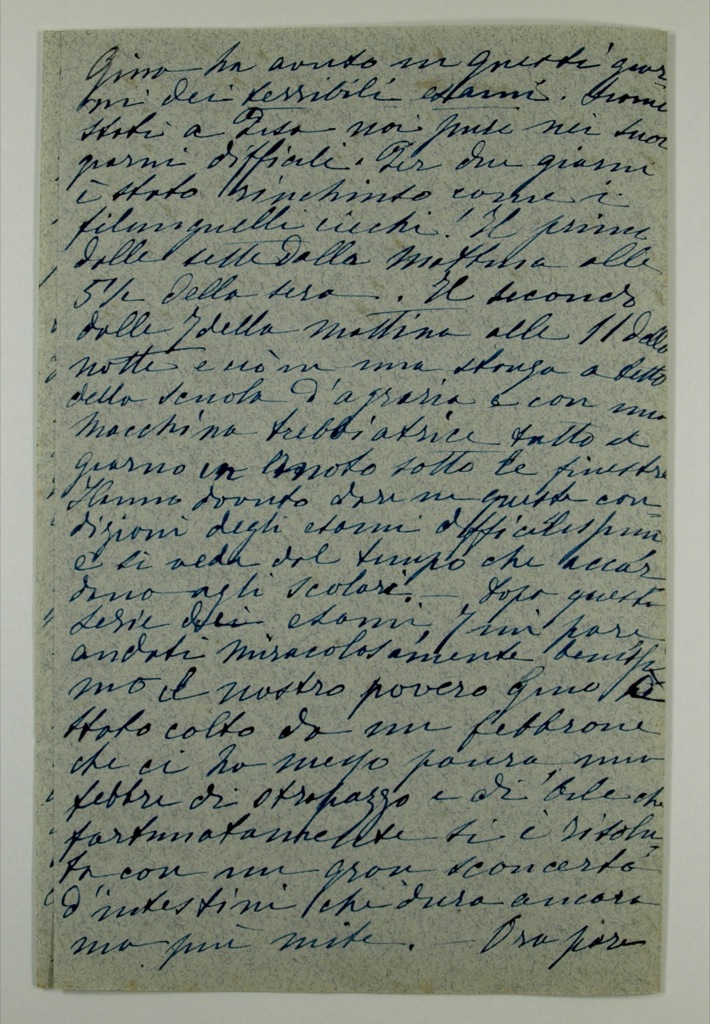 Gino ha avuto in questi gior-
ni dei terribili esami. Siamo
stati a Pisa noi pure nei suoi
giorni difficili. Per due giorni
è stato rinchiuso come i
filunguelli ciechi! Il primo
dalle sette dalla mattina alle
5½ della sera. Il secondo
dalle 7 della mattina alle 11 della
notte e ciò in una stanza a tetto
della scuola d'agraria e con una
macchina trebbiatrice tutto il
giorno in moto sotto le finestre
Hanno dovuto dare in queste con-
dizioni degli esami difficilissimi
e si veda dal tempo che accor-
dano agli scolari. — Dopo questa
serie dei esami, mi pare,
andati miracolosamente benissi-
mo il nostro povero Gino è
stato colto da un febbrone
che ci ha messo paura, una
febbre di strapazzo e di bile che
fortunatamente si è risolu-
ta con un gran sconcerto
d'intestini che dura ancora
ma più mite. — Ora pare